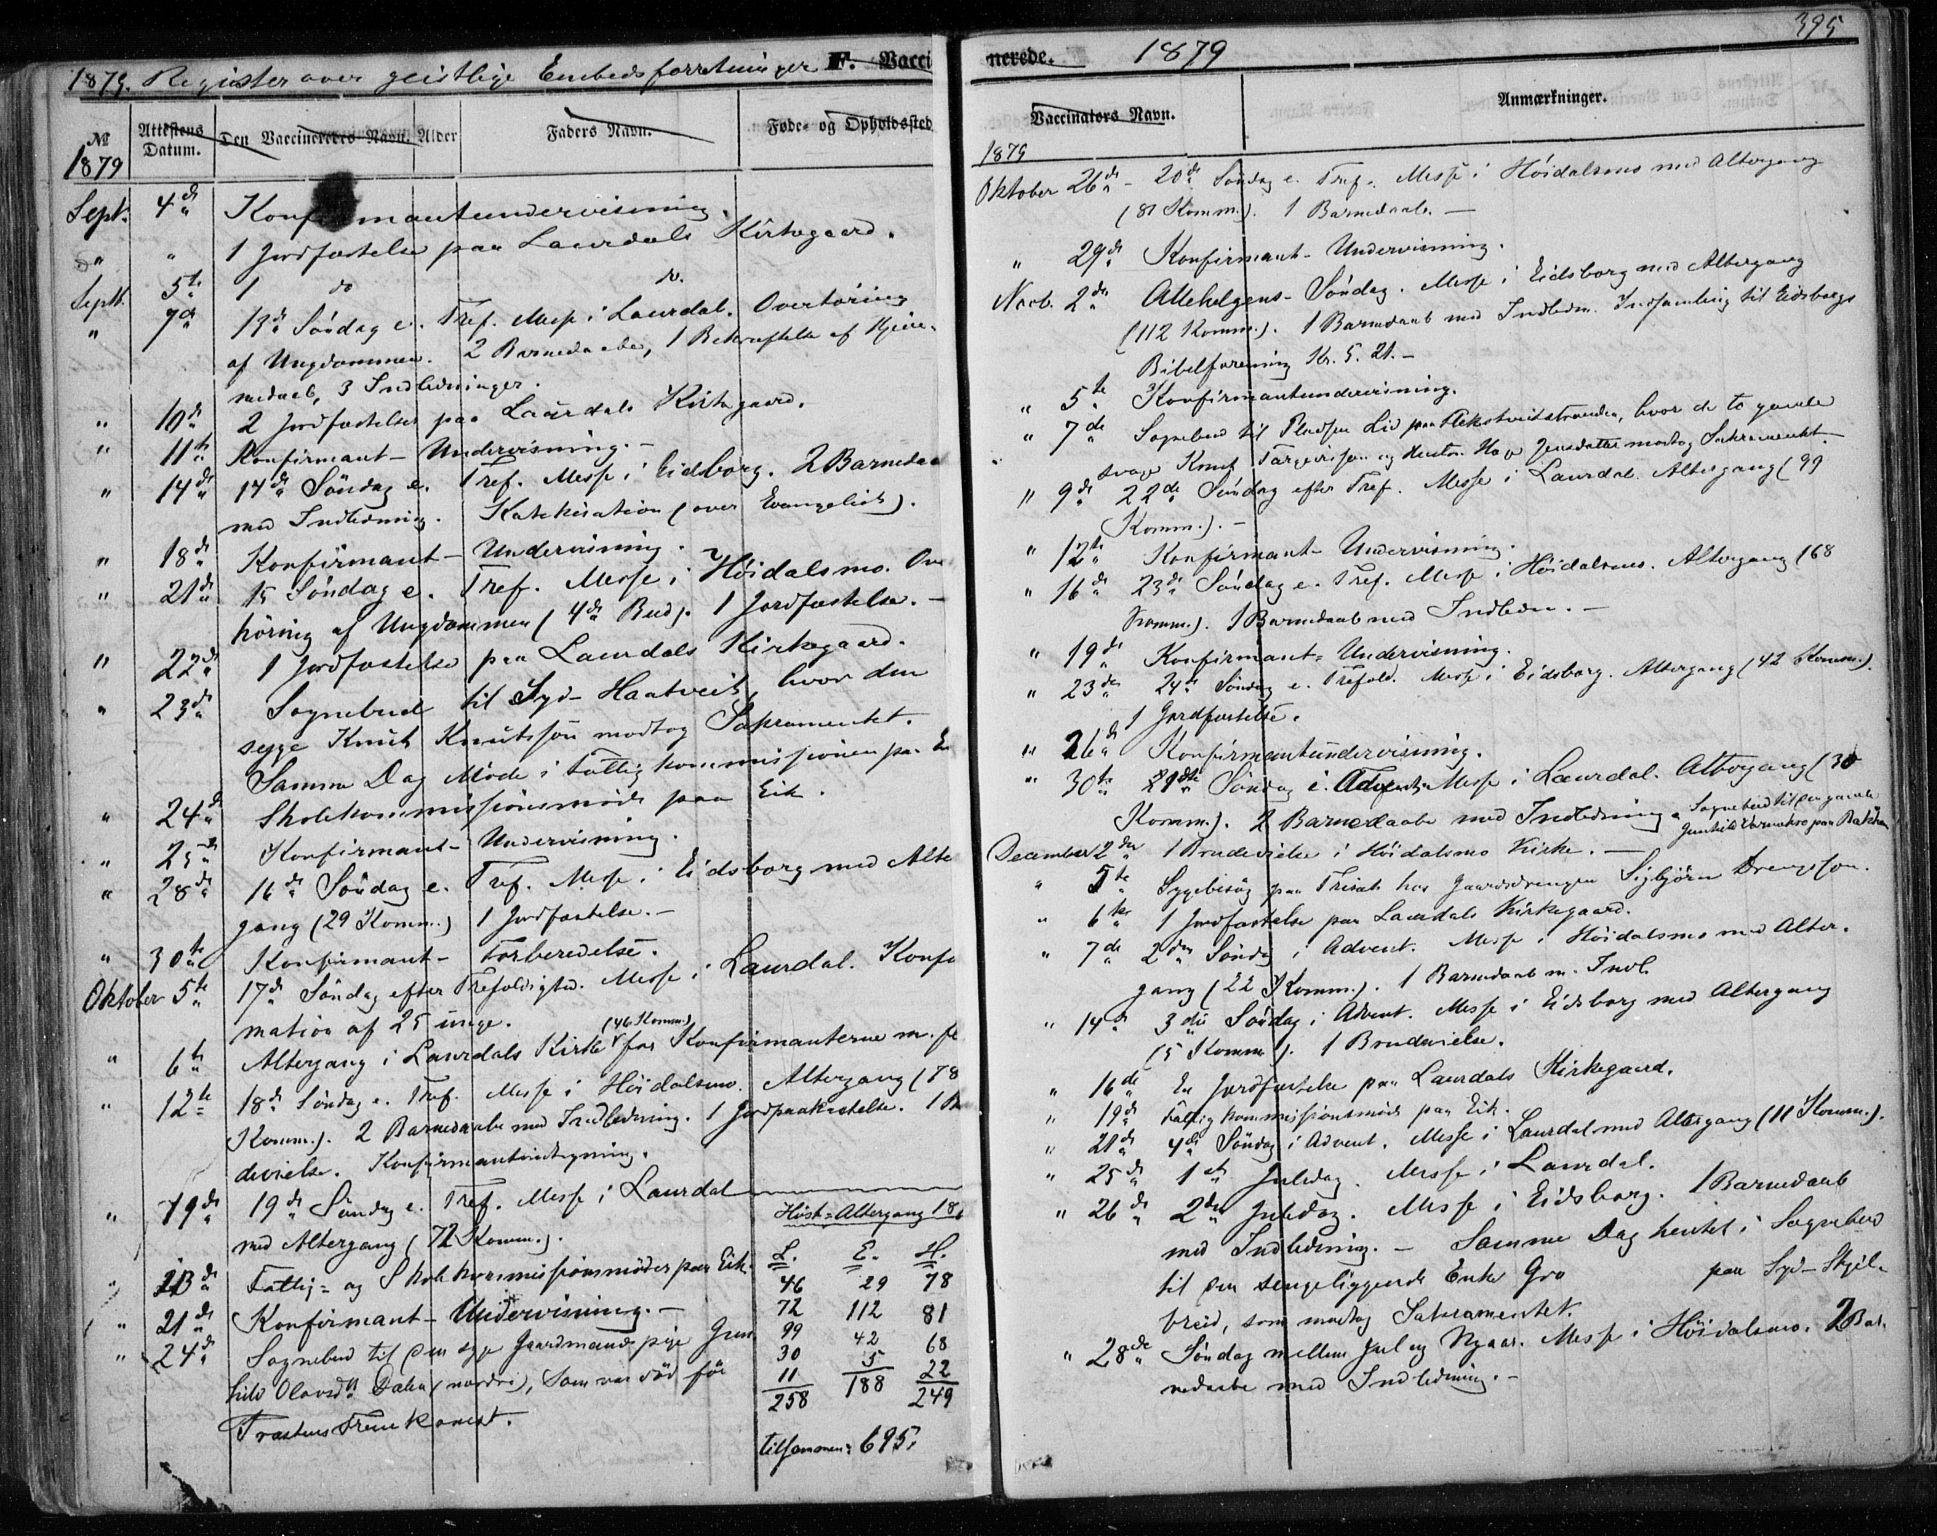 1879. Register over geistlige Embedsforretninger F. Vacci
№ Attestens Datum. Den Vaccineredes Navn. Alder Faders Navn. Føde- og Opholdssted
1879
Sept. 4de Konfirmantundervisning.
" " 1 Jordfæstelse paa Laurdals Kirkegaard.
Sept. 5te 1 do do.
" 7de 13de Søndag e. Tref. Messe i Laurdal. Overhøring
af Ungdommen. 2 Barnedaabe, 1 Bekræftelse af Hjem-
medaab, 3 Indledninger.
" 10de 2 Jordfæstelser paa Laurdals Kirkegaard.
" 11te Konfirmant-Undervisning. -
" 14de 14de Søndag e. Tref. Messe i Eidsborg. 2 Barnedaa
med Indledning. Katekisation (over Evangeliet).
" 18de Konfirmant-Undervisning.
" 21de 15 Søndag e. Tref. Messe i Høidalsmo. Ove
høring af Ungdommen (4de Bud). 1 Jordfæstelse. -
" 22de 1 Jordfæstelse paa Laurdals Kirkegaard.
" 23de Sognebud til Syd-Haatveit, hvor den
syge Knut Knutssøn modtog Sakramentet.
Samme Dag Møde i Fattigkommissionen paa E
" 24de Skolekommissionsmøde paa Eik.
" 25de Konfirmant-Undervisning.
" 28de 16de Søndag e. Tref. Messe i Eidsborg med Alte
gang (29 Komm.) 1 Jordfæstelse. -
" 30te Konfirmant-Forberedelse.
Oktober 5te 17de Søndag efter Trefoldighed. Messe i Laurdal. Konfir
mation af 25 unge.
" 6te Altergang i Laurdals Kirke (46 Komm.) for Konfirmanterne m. fl
" 12te 18de Søndag e. Tref. Messe i Høidalsmo. Altergang (78
Komm.). 2 Barnedaabe med Indledning. 1 Jordpaakastelse. 1 Br
devielse. Konfirmantindtegning.
" 19de 19de Søndag e. Tref. Messe i Laurdal
med Altergang (72 Komm.).
" de Fattig- og Skolekommissionsmøder paa Eik.
" 21de Konfirmant-Undervisning. -
" 24de Sognebud til den syge Gaardmandspige Gun
hild Olavsdtr Dalen (nordre), som var død før
Præstens Fremkomst.
Høst-Altergang 18
L. E. H.
46 29 78
72 112 81
99 42 68
30 5 22
11 188 249
258
tilsammen: 695.
nerede. 1879 395
Vaccinators Navn. Anmærkninger.
1879
Oktober 26de - 20de Søndag e. Tref. Messe i Høidalsmo med Altergang
(81 Komm.). 1 Barnedaab. -
" 29de Konfirmant-Undervisning.
Novb. 2den Allehelgens-Søndag. Messe i Eidsborg med Altergang
(112 Komm.). 1 Barnedaab med Indledn. Indsamling til Eidsborgs
Bibelforening Kr. 5. 21. -
" 5te Konfirmantundervisning.
" 7de Sognebud til Pladsen Lid paa hvor de to gamle
svage Knut Targeirssøn og Hustru Jensdatter modtog Sakramentet.
" 9de 22de Søndag efter Tref. Messe i Laurdal. Altergang (99
Komm.). -
" 12te Konfirmant-Undervisning.
" 16de 23de Søndag e. Tref. Messe i Høidalsmo. Altergang (68
Komm.). 1 Barnedaab med Indledn. -
" 19de Konfirmant-Undervisning.
" 23de 24de Søndag e. Trefold. Messe i Eidsborg. Altergang (42 Komm.).
1 Jordfæstelse.
" 26de Konfirmantundervisning.
" 30te 1ste Søndag i Advent. Messe i Laurdal. Altergang (30
Komm.). 2 Barnedaabe med Indledning. Sognebud til den gamle
Gunhild paa Bakken
December 2den 1 Brudevielse i Høidalsmo Kirke. -
" 5te Sygebesøg paa Trisæt hos Gaardsdrengen Sigbjørn Drengsøn.
" 6te 1 Jordfæstelse paa Laurdals Kirkegaard.
" 7de 2den Søndag i Advent. Messe i Høidalsmo med Alter-
gang (22 Komm.). 1 Barnedaab m. Indl.
" 14de 3die Søndag i Advent. Messe i Eidsborg med Altergang
(5 Komm.). 1 Brudevielse.
" 16de En Jordfæstelse paa Laurdals Kirkegaard.
" 19de Fattigkommissionsmøde paa Eik.
" 21de 4de Søndag i Advent. Messe i Laurdal med Altergang (11 Komm.).
" 25de 1ste Juledag. Messe i Laurdal.
" 26de 2den Juledag. Messe i Eidsborg. 1 Barnedaab
med Indledning. - Samme Dag hentet i Sognebud
til den sengeliggende Enke Gro paa Syd-Skjel-
breid, som modtog Sakramentet.
" 28de Søndag mellem Jul og Nyaar. Messe i Høidalsmo. 2 Bar-
nedaabe med Indledning. -